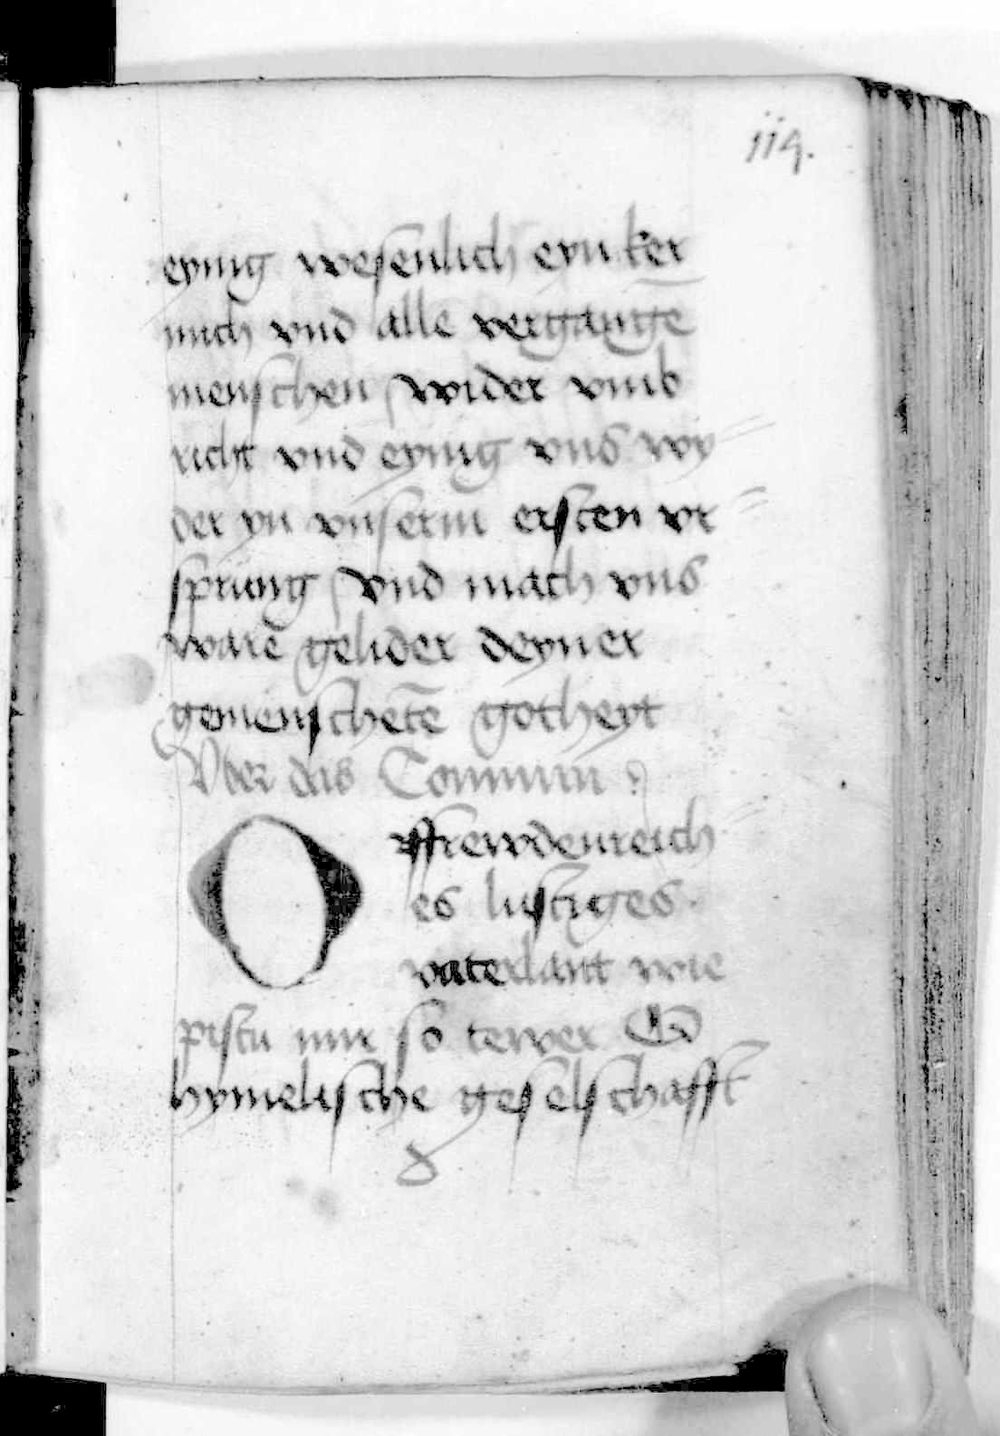 114.
eynig wesenlich eyn ker
mich vnd alle vergangē
menschen wider vmb
richt vnd eynig vns wy=
der yn vnserm ersten vr=
sprung vnd mach vns
ware gelider deyner
gemenschetē gotheyt
Vber das Commun
O ffrewdenreich=
es lustiges
vaterlant wie
pistu mir so tewer O
hymelische geselschafft